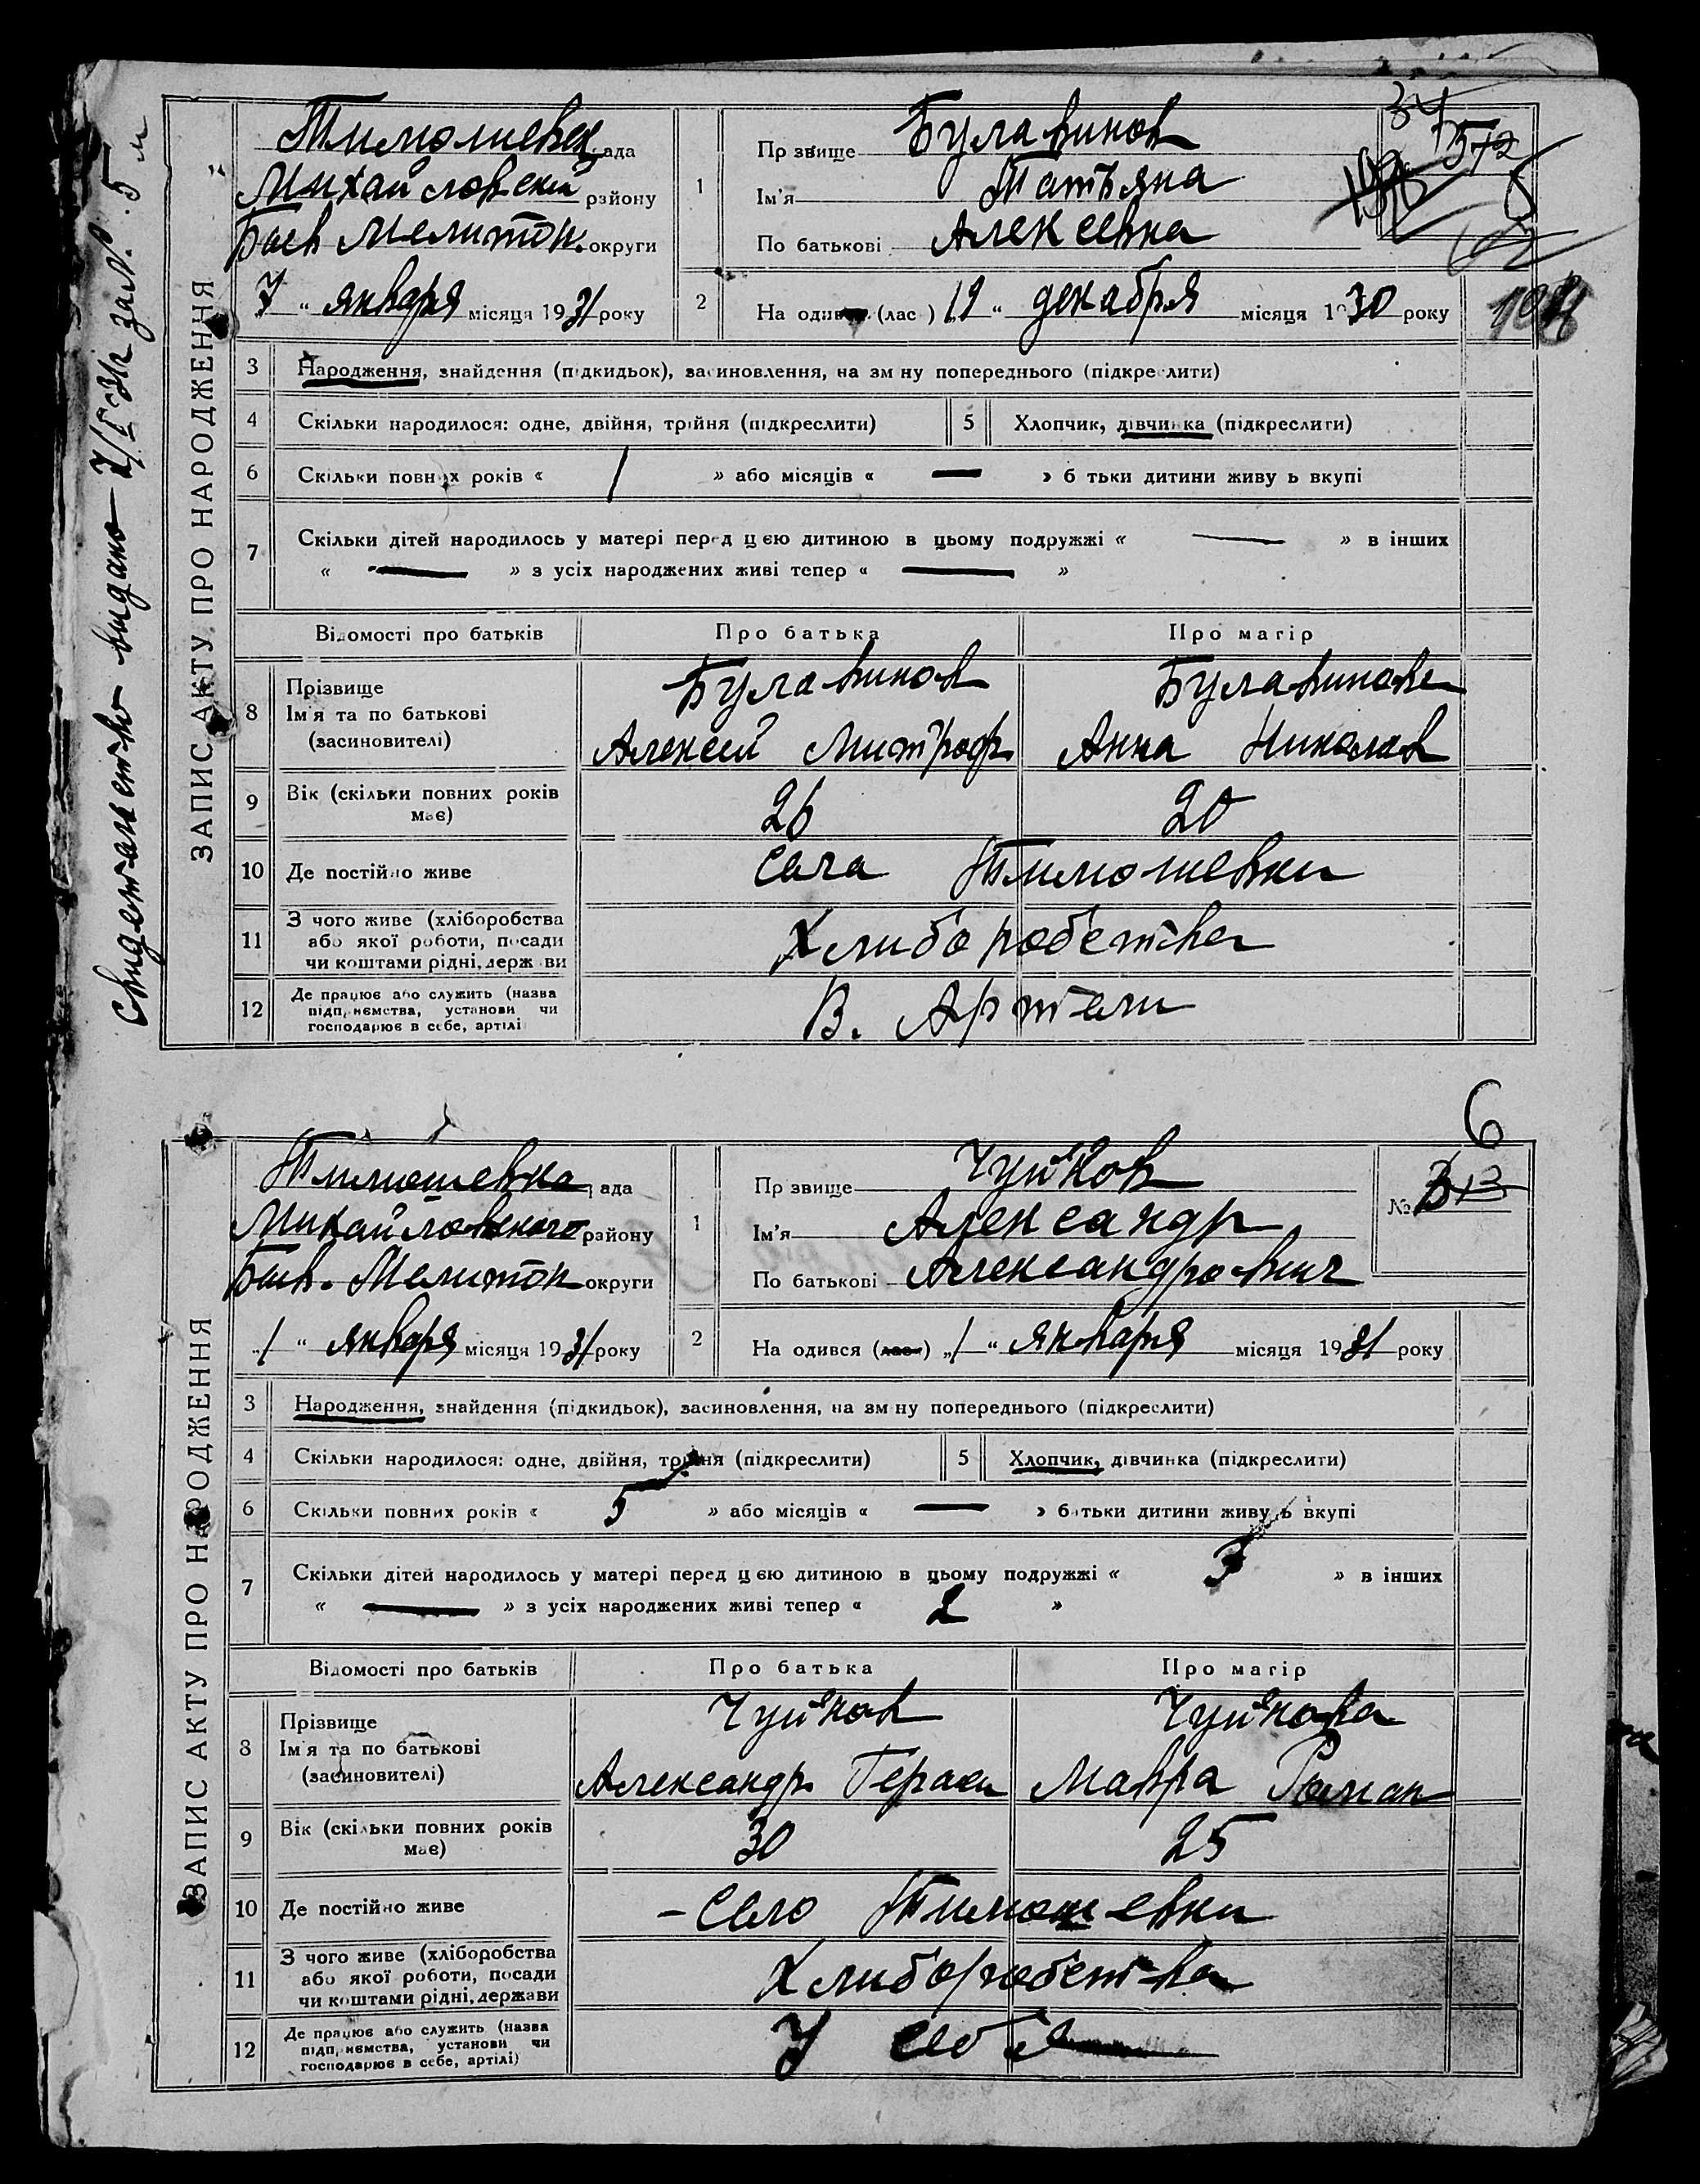 Свидетельство выдано 7/I-31г
ЗАПИС АКТУ ПРО НАРОДЖЕННЯ
Тимошевка рада
Михайловский району
Быв Мелитоп. округи
7 " января місяця 1931 року
1
Прізвище Булавинов
Ім'я Татьяна
По батькові Алексеевна
34
2
На один (лас ) 19 " декабря місяця 1930 року
3 Народження, знайдення (підкидьок), засиновлення, на зміну попереднього (підкреслити)
4 Скільки народилося: одне, двійня, трійня (підкреслити) 5 Хлопчик, дівчинка (підкреслити)
6 Скільки повних років « 1 » або місяців « — » батьки дитини живуть вкупі
7 Скільки дітей народилось у матері перед цією дитиною в цьому подружжі « — » в інших
« — » з усіх народжених живі тепер « — »
Відомості про батьків Про батька Про матір
8 Прізвище Булавинов Булавинова
Ім'я та по батькові Алексей Митроф. Анна Николаев
(засновителі)
9 Вік (скільки повних років має) 26 20
10 Де постійно живе села Тимошевки
11 З чого живе (хліборобства
або якої роботи, посади Хлиборобства
чи коштами рідні, держави
12 Де працює або служить (назва
підприємства, установи чи В. Артели
господарює в себе, артілі
6
ЗАПИС АКТУ ПРО НАРОДЖЕННЯ
Тимошевка рада
Михайловского району
Быв. Мелитоп округи
„1 " января місяця 1931 року
1
Прізвище Чуйков
Ім'я Александр
По батькові Александрович
№
2
На одився (лась) „1 " января місяця 1931 року
3 Народження, знайдення (підкидьок), засиновлення, на зміну попереднього (підкреслити)
4 Скільки народилося: одне, двійня, трійня (підкреслити) 5 Хлопчик, дівчинка (підкреслити)
6 Скільки повних років « 5 » або місяців « — » батьки дитини живуть вкупі
7 Скільки дітей народилось у матері перед цією дитиною в цьому подружжі « 3 » в інших
« — » з усіх народжених живі тепер « 2 »
Відомості про батьків Про батька Про матір
8 Прізвище Чуйков Чуйкова
Ім'я та по батькові Александр Гераси Мавра Роман
(засиновителі)
9 Вік (скільки повних років має) 30 25
10 Де постійно живе – Село Тимошевки
11 З чого живе (хліборобства
або якої роботи, посади Хлиборобства
чи коштами рідні, держави
12 Де працює або служить (назва
підприємства, установи чи У себя
господарює в себе, артілі)